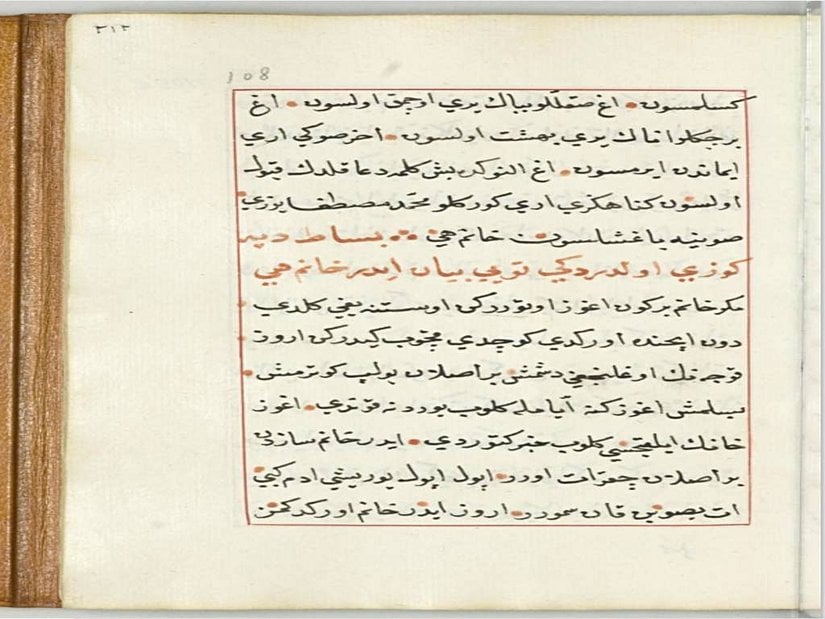 ٢١٢
108
كسلمسون اغ صقللو باباك يري اوجمق اولسون اغ
برجكلو اناك يري بهشت اولسون اخر صوكي اري
ايماندن ايرمسون اغ النوكده بش كلمه دعا قلدك قبول
اولسون كناهكزي ادي كوركلو محمد مصطفا يوزي
صوينه باغشلسون خانم هي بساط دپه
كوزي اولدردكي بويي بيان ايدر خانم هي
مكر خانم بركون اغوز اوتوروركن اوستنه يغي كلدي
دون ايچنده اوركدي كوچدي قچوب كيدركن اروز
قوجه نك اوغلنجغي دشمش بر اصلان بولب كوترمش
بسلمش اغوز كنه ايامله كلوب يوردنه قوندي اغوز
خانك ايلقچيسي كلوب خبر كتوردي ايدر خانم سازدن
بر اصلان چقر ات اورر اپول اپول يوريشي ادم كبي
ات بصوبن قان سمورر اروز ايدر خانم اوركدكمزن